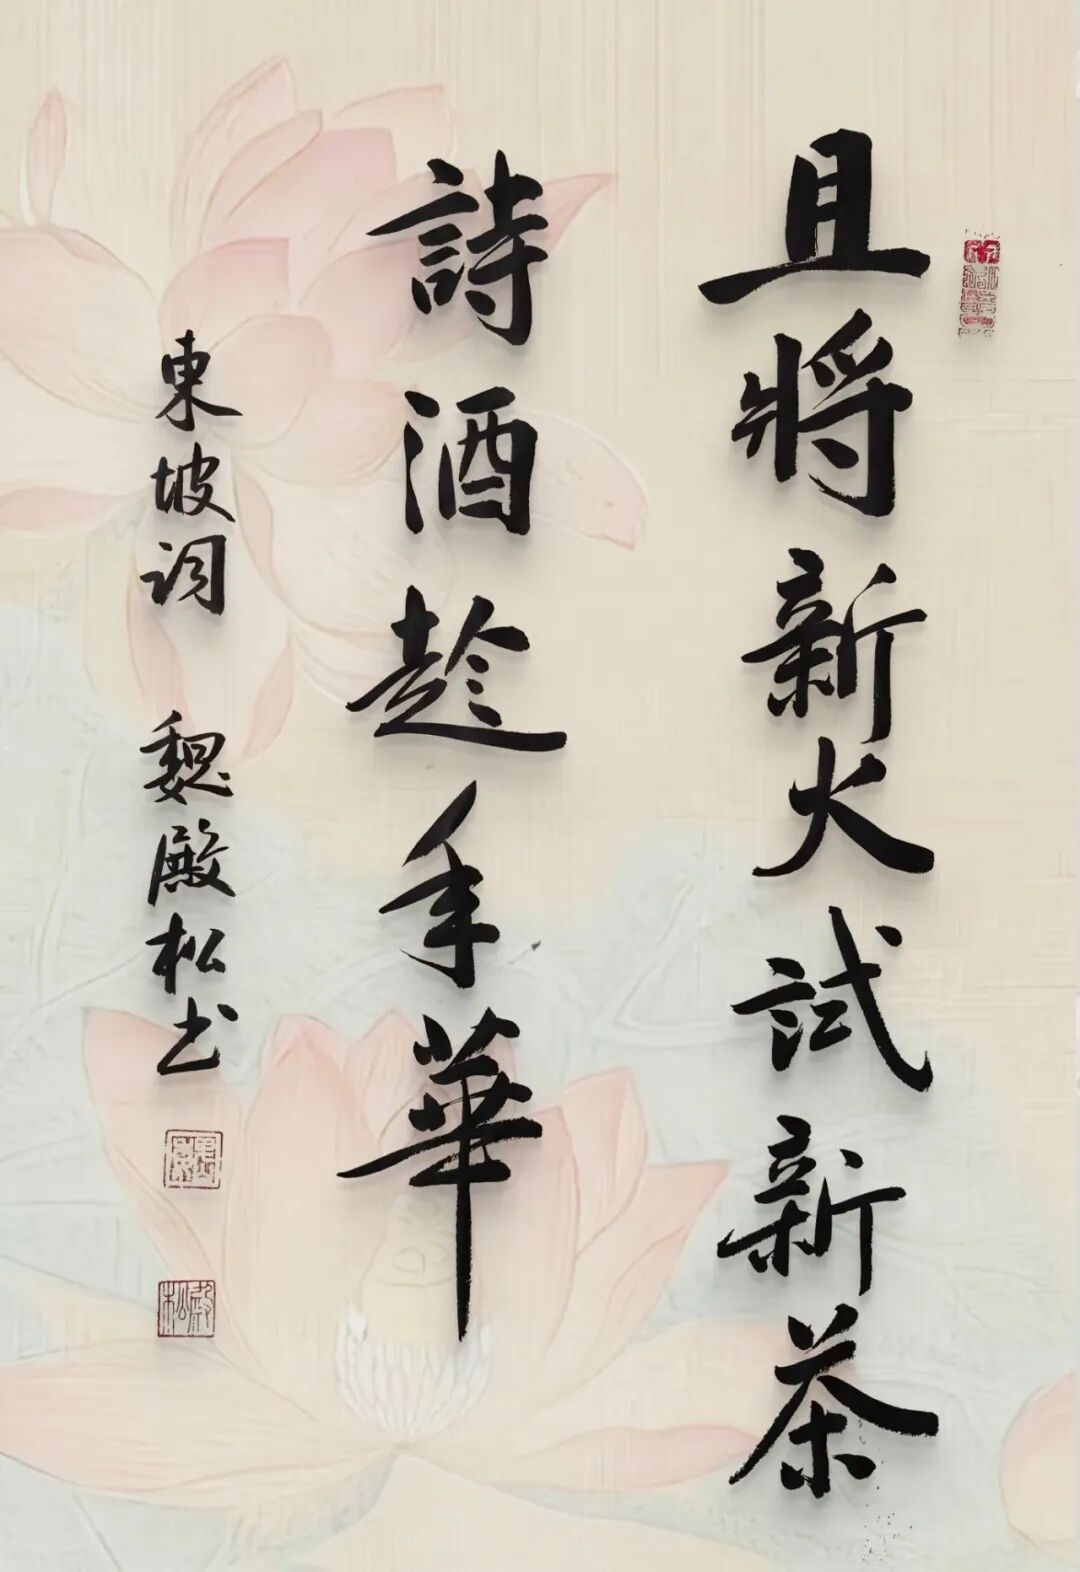 且將新火試新茶
詩酒趁年華
東坡詞 魏殿松书